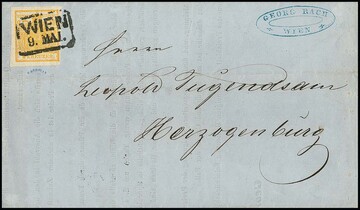 WIEN
9. MAI.
GEORG BACH
WIEN
Herrn
Leopold Tugendsam
Herzogenburg